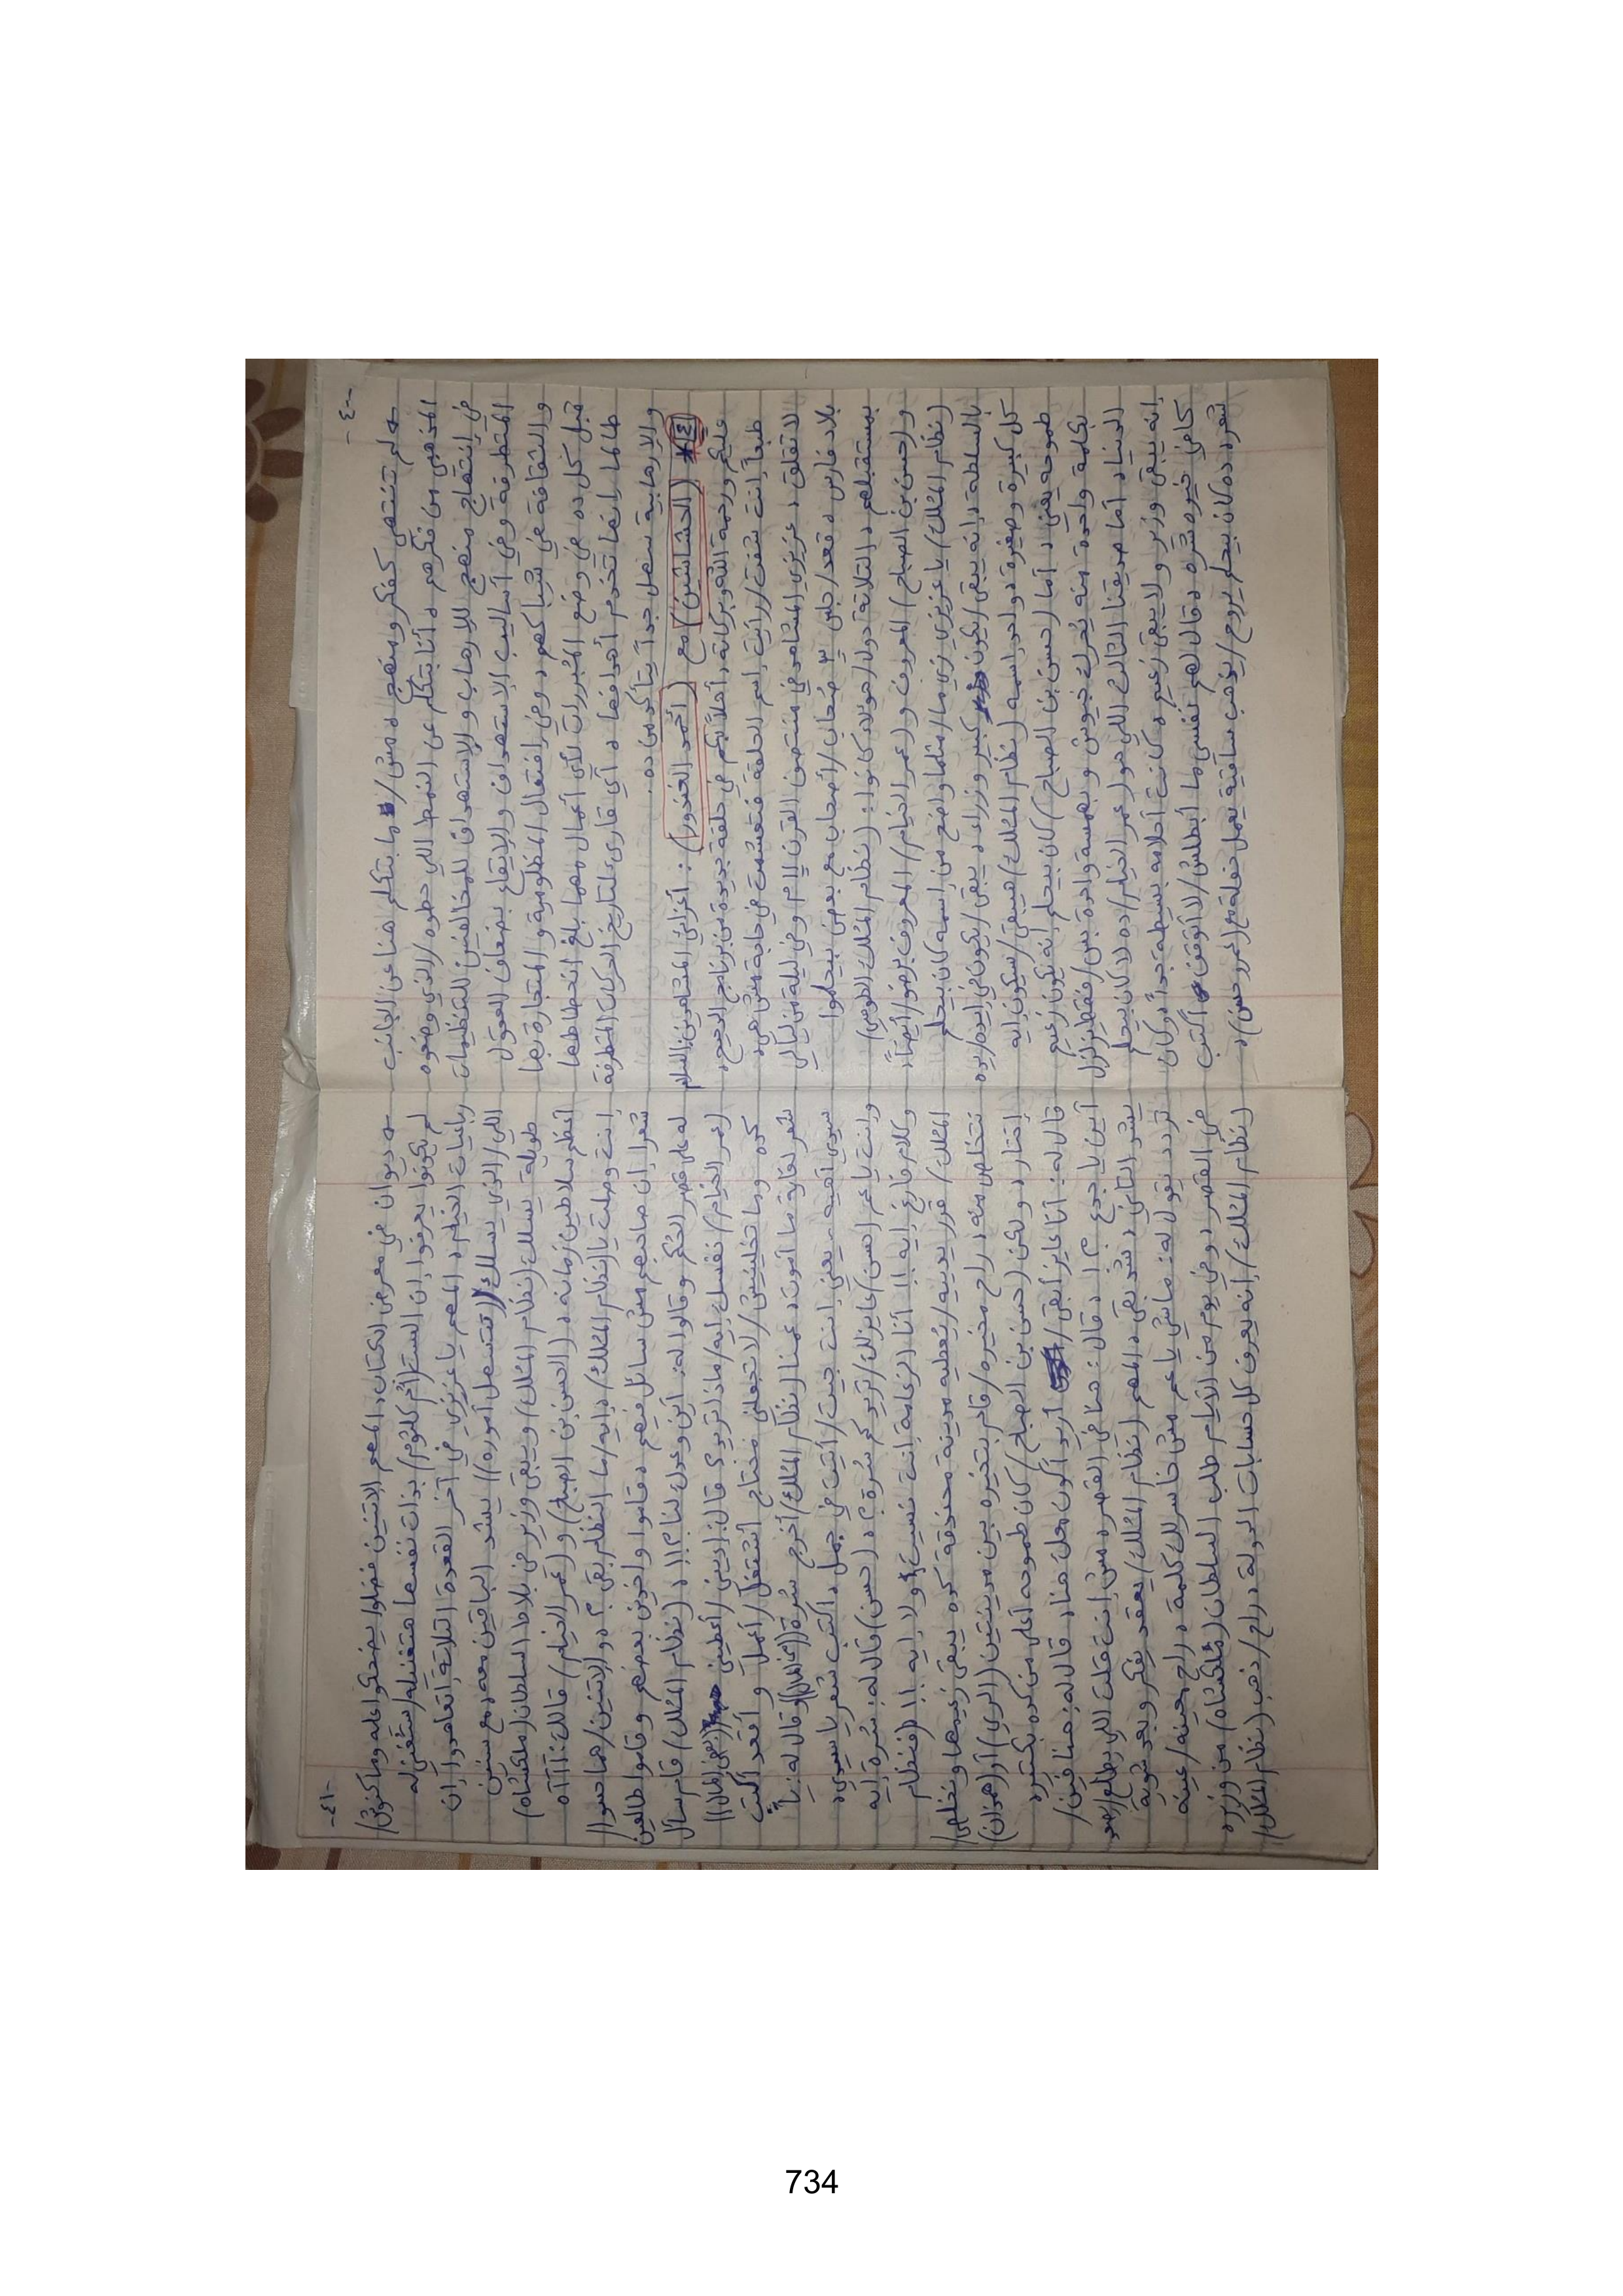 -٤٠-
← لم تنتهي كفكر ومنهج، مش/ما بتكلم هنا عن الجانب
المذهبي من فكرهم، أنا بتكلم عن النمط اللي حطوه/الذي وضعوه
في إنتهاج منهج للإرهاب والإستهداف للمخالفين للتنظيمات
المتطرفة وفي أساليب الإستهداف والإيقاع بضعاف العقول
والثقافة في شباكهم، وفي إفتعال المظلومية والمتجارة بها
قبل كل ده في وضع المُبررات لأي أعمال مهما بلغ إنحطاطها
طالما إنها تخدم أهدافها، أي قارىء لتاريخ الحركات المتطرفة
والإرهابية سهل جداً يتأكد من ده.
٤* (الحشاشين) مع (أحمد الغندور): أعزائي المشاهدين السلام
عليكم ورحمة الله وبركاته، أهلاً بكم في حلقة جديدة من برنامج الدحيح،
طبعاً إنت شفت/رأيت إسم الحلقة فتعشمت في حاجة مش هي،
لا تقلق، عزيزي المشاهد في منتصف القرن الـ١١م وفي ليلة من ليالي
بلاد فارس، قعد/جلس ٣ صُحاب/أصحاب مع بعض بيحلموا
بمستقبلهم، التلاتة دول/هؤلاء كانوا: (نظام المُلك الطوسي)
و(حسن بن الصباح) المعروف و(عمر الخيام) المعروف برضو/أيضاً،
(نظام المُلك) يا عزيزي زي ما/مثلما واضح من إسمه كان بيحلم
بالسلطة، إنه يبقى/يكون كبير وزراء، يبقى/يكون في إيده/يده
كل كبيرة وصغيرة، واحد إسمه (نظام المُلك) هيبقى/سيكون إيه
طموحه يعني، أما (حسن بن الصباح) كان بيحلم إنه يكون زعيم
بكلمة واحدة منه يُحرك جيوش وبهمسة واحدة بس/فقط يزلزل
الدنيا، أما صديقنا الثالث اللي هو (عمر الخيام) ده لا كان بيحلم
إنه يبقى وزير ولا يبقى زعيم، كانت أحلامه بسيطة جداً، وكان
كافي خيره شره، قال لهم نفسي ما أبطلش/لا أتوقف أكتب
شعر، ده كان بيحلم يروح/يذهب ساقية يعمل حفلة مع (عمرو حسن)،
-٤١-
← ديوان في معرض الكتاب، المهم الاتنين فضلوا يضحكوا عليه وما كنوش/
لم يكونوا يعرفوا إن الست (أم كلثوم) بذات نفسها هتغنيله/ستُغني له
رباعيات الخيام، المهم يا عزيزي في آخر القعدة التلاتة إتعاهدوا إن
اللي/الذي يسلك((تتسهل أموره)) يشد الباقيين معه، مع سنين
طويلة يسلك (نظام المُلك) ويبقى وزير في بلاط السلطان (ملكشاه)
أعظم سلاطين زمانه، (الحسن بن الصباح) و(عمر الخيام) قالك: آآآه
إنت وصلت يا (نظام المُلك)، إيه/ما النظام بقى؟، والاتنين/هما حسوا/
شعرا إن صاحبهم مش سائل فيهم، قاموا واخدين بعضهم وقاموا طالعين
له على قصر الحُكم وقالوا له: أين وعدك لنا؟!!، (نظام المُلك) قام سأل
(عمر الخيام) نفسك إيه/ماذا تريد؟ قال: إديني/أعطيني ((بعض المال))
كده وما تخلينيش/لا تجعلني محتاج أشتغل/أعمل وأقعد أكتب
شعر لغاية ما أموت، عمنا (نظام المُلك) أخرج سُرة((بها المال)) وقال له: يا
سيدي آهيه - يعني إنت جيت/أتيت في جمل، أكتب شعر يا سيدي،
وإنت يا عم (حسن) عايزلك/تريد كم سُرة؟، (حسن) قال له: سُرة إيه
وكلام فارغ إيه!! أنا الزعامة إنت نسيت ولا إيه!! (فنظام
المُلك) قرر يديه/يُعطيه مدينة محندقة كده يبقى زعيمها ونخلص/
نتخلص منه، راح مخيره/قام بتخيره بين مدينتين (الري) أو (أهوان)
إختار، ولكن (حسن بن الصباح) كان طموحه أعلى من كده بكتير،
قال له: أنا عايز أبقى/أريد أكون محلك هنا، قال له: هنا فين/
أين يا جدع؟!، قال: هنا في القصر، مش إنت قلت اللي يطلع/يصعد
يشد التاني، شد بقى، المهم (نظام المُلك) يعقد يفكر وبعد شوية
تردد يقول له: ماشي يا عم مش خاسرلك كلمة، راح معينه/عينه
في القصر، وفي يوم من الأيام طلب السلطان (ملكشاه) من وزيره
(نظام المُلك) إنه يعرف كل حسابات الدولة، راح/ذهب (نظام المُلك)/
734